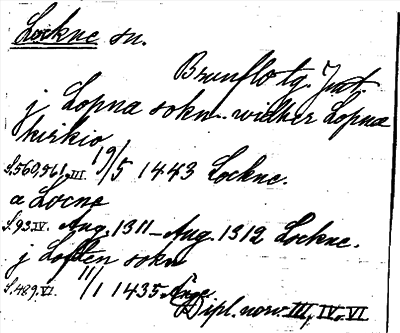 Lockne sn.
Brunflo tg. Jmt.
j Lopna sokn widher Lopna
kirkio
S.560,561.III 19/5 1443 Lockne.
a Locne
S.93.IV. Aug. 1311–Aug. 1312 Lockne.
j Loften sokn
S.489.VI. 11/1 1435 Ånge
Dipl. norv. III, IV, VI